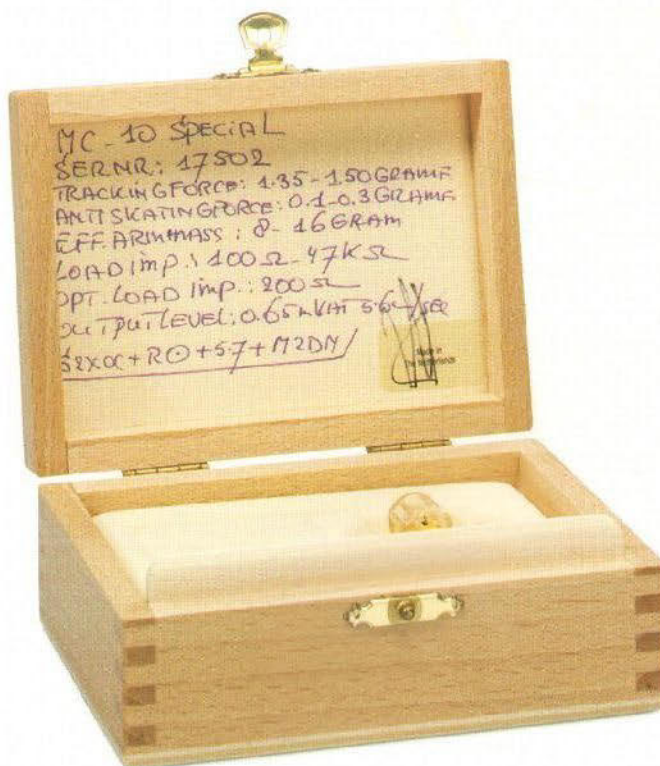 MC-10 SPECIAL
SERNR: 17502
TRACKINGFORCE: 1.35-1.50GRAMF
ANTISKATINGFORCE: 0.1-0.3GRAMF
EFF. ARMMASS: 8-16GRAM
LOAD imp.: 100Ω-47KΩ
OPT. LOAD imp.: 200Ω
OUTPUTLEVEL: 0.65mVAT
Made in
The Netherlands